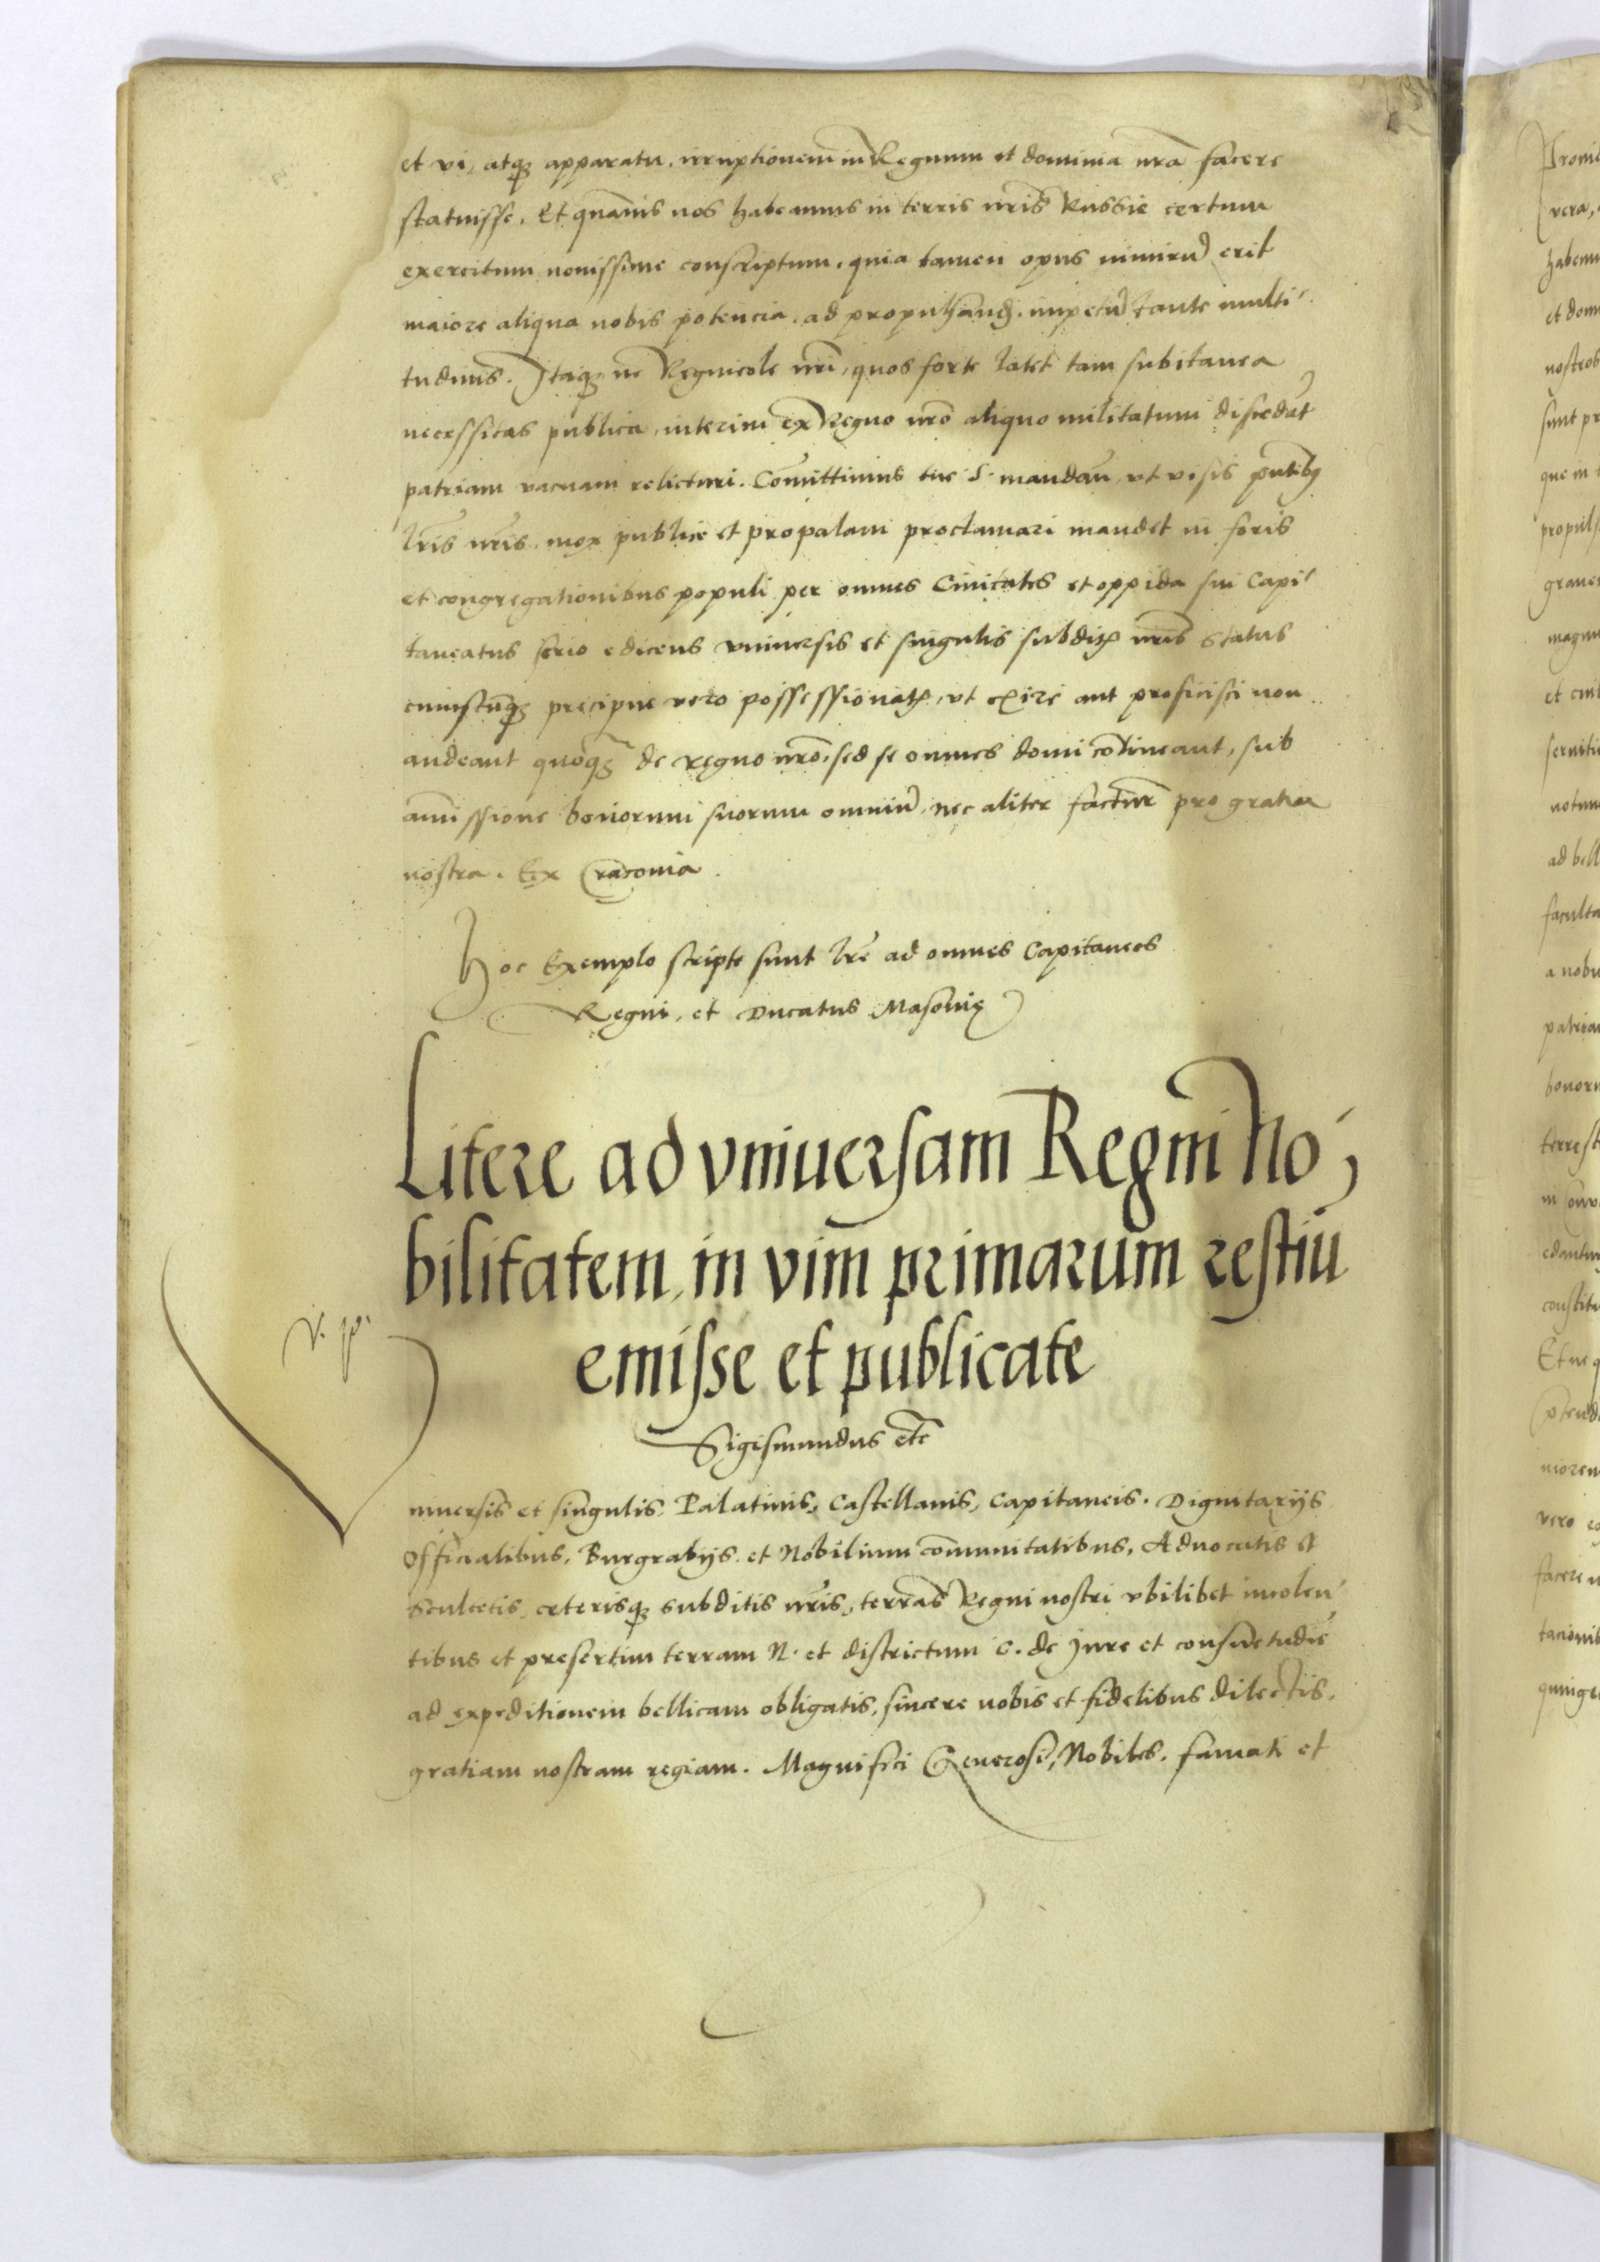 et vi, atq₃ apparatu, irruptionem in Regnum et dominia nr̄a facere
statuisse. Et quāuis nos habeamus in terris nr̄is Russie certum
exercitum nouissime conscriptum, quia tamen opus nimirū erit
maiore aliqua nobis potencia, ad propulsand. impetū tante multi
tudinis. Itaq₃ ne Regnicole nr̄i, quos forte latet tam subitanea
necessitas publica, interim ex Regno nr̄o aliquo militatum discedāt
patriam vacuam relicturi. Com̄ittimus tue S. mandan. vt visis pn̄tibq
lr̄is nr̄is, mox publice et propalam proclamari mandet in foris
et congregationibus populi per omnes Ciuitates et oppida sui Capi
taneatus serio edicens vniuersis et singulis subditꝭ nr̄is status
cuiuscūq₃ precipue vero possessionatꝭ, vt exire aut proficisci non
audeant quoq₃ de regno nr̄o, sed se omnes domi cōtineant, sub
amissione bonorum suorum omniū, nec aliter factur̄ pro gratia
nostra. Ex Cracouia
Hoc Exemplo scripte sunt lr̄e ad omnes Capitaneos
Regni, et Ducatus Masouię
Litere ad vniuersam Regni No
bilitatem, in vim primarum restiū
emisse et publicate
Sigismundus etc̄
v. p.
niuersis et singulis, Palatinis, Castellanis, Capitaneis. Dignitarijs
Officialibus, Burgrabijs, et Nobilium cōmunitatibus, Aduocatis et
Scultetis, ceterisq₃ subditis nr̄is, terras Regni nostri vbilibet incolen
tibus et presertim terram N. et districtum C. de Jure et consuetudīe
ad expeditionem bellicam obligatis, sincere nobis et fidelibus dilectis,
gratiam nostram regiam. Magnifici Generosi, Nobiles, famati et